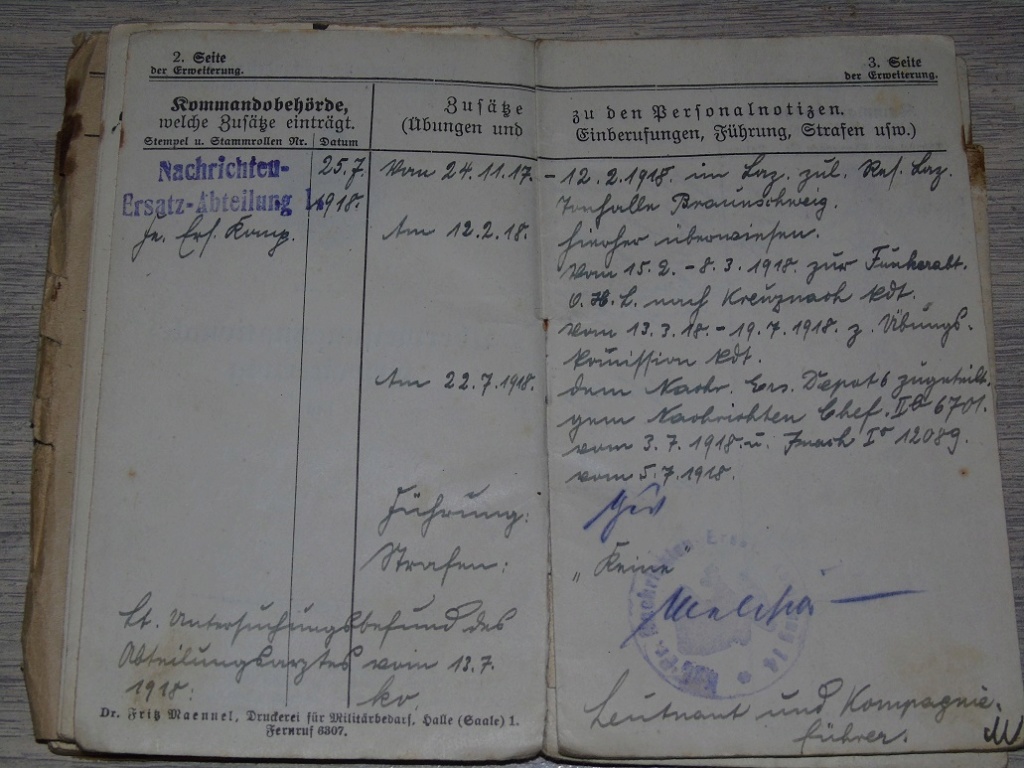 2. Seite
der Erweiterung.
Kommandobehörde,
welche Zusätze einträgt.
Stempel u. Stammrollen Nr. Datum
Zusätze
(Übungen und
Nachrichten-
Ersatz-Abteilung
25.7.
1918.
Fe. Ers. Komp.
Vom 24.11.17.
Am 12.2.18.
Am 22.7.1918.
Führung:
Strafen:
Lt. Untersuchungsbefund des
Abteilungsarztes vom 13.7.
1918: kv.
Dr. Fritz Maennel, Druckerei für Militärbedarf, Halle (Saale) 1.
Fernruf 6307.
3. Seite
der Erweiterung.
zu den Personalnotizen.
Einberufungen, Führung, Strafen usw.)
- 12.2.1918. im Laz. zul. Res. Laz.
Tonhalle Braunschweig.
hierher überwiesen.
Vom 15.2. - 8.3.1918. zur Funkerabt.
O.H.L. nach Kreuznach kdt.
Vom 13.3.18. - 19.7.1918. z. Übungs-
komission kdt.
dem Nachr. Ers. Depot 6 zugeteilt.
gem Nachrichten Chef. 6701.
vom 3.7.1918. u. 12089.
vom 5.7.1918.
Gut
"Keine"
Leutnant und Kompagnie-
führer.